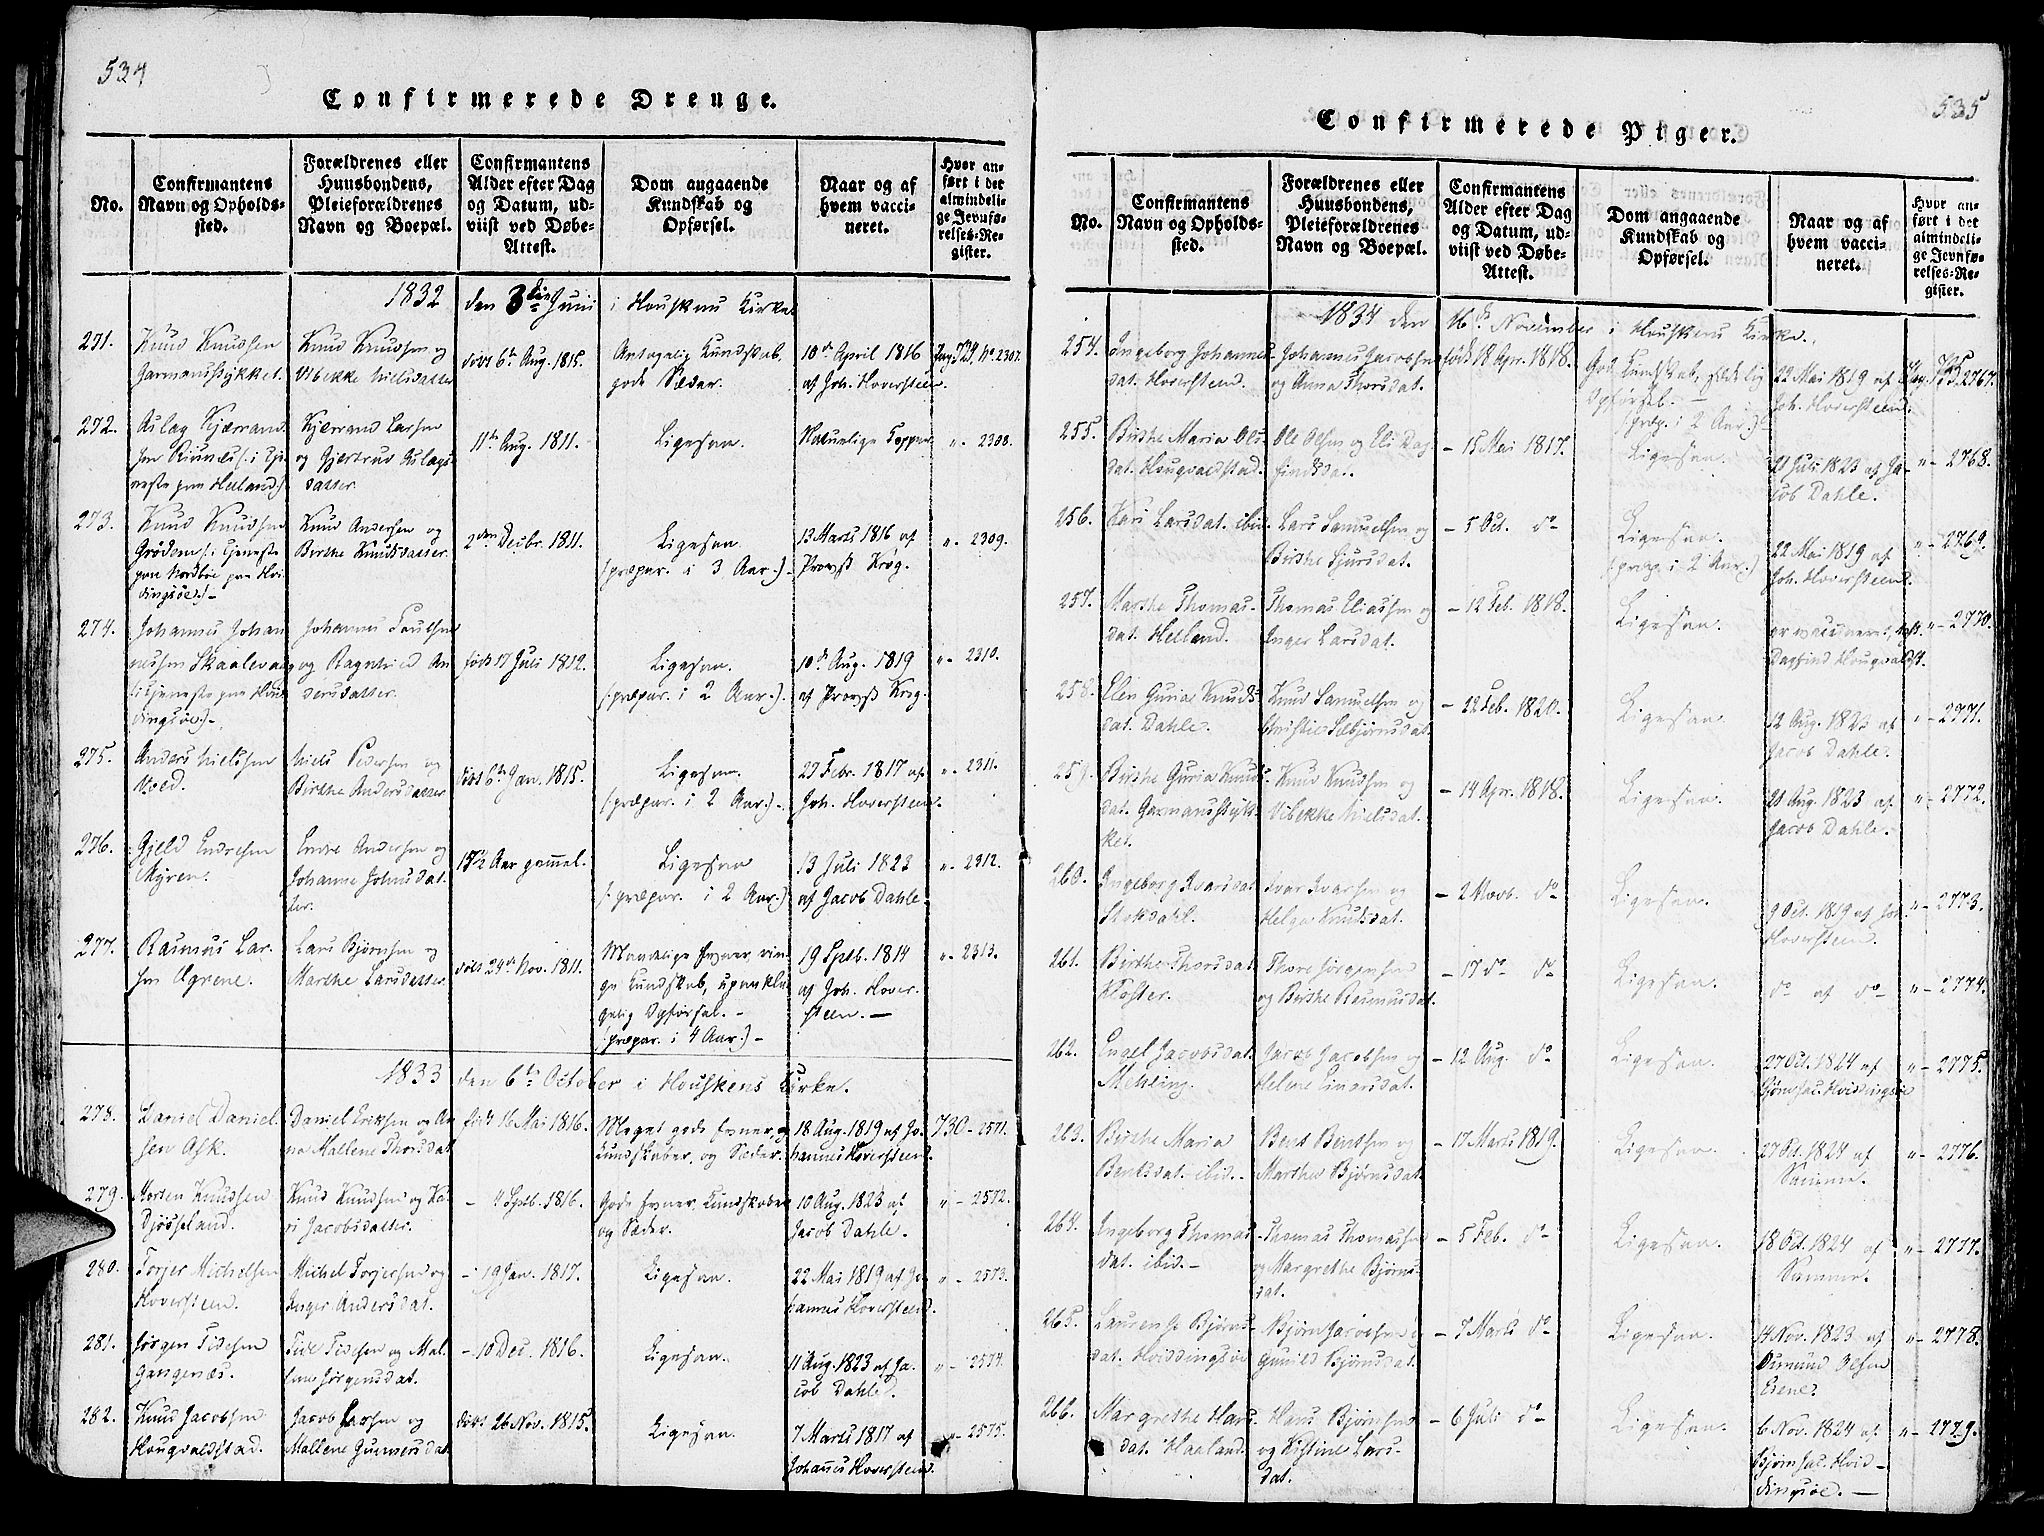 534
Confirmerede Drenge.
No.
Confirmantens
Navn og Opholds-
sted.
Forældrenes eller
Huusbondens,
Pleieforældrenes
Navn og Boepæl.
Confirmantens
Alder efter Dag
og Datum, ud-
viist ved Døbe-
Attest.
Dom angaaende
Kundskab og
Opførsel.
Naar og af
hvem vacci-
neret.
Hvor an-
ført i det
almindeli-
ge Jevnfø-
relses-Re-
gister.
1832 den 3die Junii i Houskens Kirke
271. Knud Knudsen
Garmansstykket.
Knud Knudsen og
Vibekke Nielsdatter
døbt 6te Aug. 1815.
Antagelig Kundskab,
gode Sæder.
10de April 1816
af Joh. Hoversteen.
Pag. 724, No. 2307.
272. Aslag Kjærrand-
sen
Kjerrand Larsen
og Gjertrud Aslags-
datter
11te Aug. 1811.
Ligesaa.
Naturlige Kopper
" - 2308.
273. Knud Knudsen
Grødem (: i Tjeneste
paa Nordbøe paa Hvi-
dingsøe:)-
Knud Andersen og
Birthe Knudsdatter.
2den Decbr. 1811.
Ligesaa.
(: præpar. i 3 Aar.:)-
13 Marts 1816 af
Provst Krog.
" - 2309.
274. Johannes Johan-
nessen Skaalevaag
(: i Tjeneste paa Hvid-
dingsøe:)-
Johannes
og Ragnhild An-
dersdatter.
født 17 Juli 1812.
Ligesaa.
(: præpar. i 2 Aar.:)-
10de Aug. 1819
af Provst Krog.
" - 2310.
275. Anders Nielsen
Vold.
Niels Pedersen og
Birthe Andersdatter
døbt 6te Jan. 1815.
Ligesaa.
(: præpar. i 2 Aar.:)-
27 Febr. 1817 af
Joh. Hoversteen.
" - 2311.
276. Gjeld Endresen
Myren.
Endre Andersen og
Johanne Johnsdat-
ter.
15 1/2 Aar gammel.
Ligesaa
(: præpar. i 2 Aar.:)
13 Juli 1823
af Jacob Dahle.
" - 2312.
277. Rasmus Lar-
sen
Lars Bjørnsen og
Marthe Larsdatter.
døbt 24de Nov. 1811.
Maadelige Evner, rin-
ge Kundskab, upaakla-
gelig Opførsel. -
(: præpar. i 4 Aar:)-
19 Septb. 1814
af Joh. Hover-
steen. -
" - 2313.
1833 den 6te October i Houskens Kirke.
278. Daniel Daniel-
sen Ask.
Daniel Eriksen og An-
na Mallene Thorsdat
født 16 Mai 1816.
Meget gode Evner og
Kundskaber, og Sæder.
18 Aug. 1819 af Jo-
hannes Hoversteen.
730 - 2571.
279. Morten Knudsen
Djøseland.
Knud Knudsen og Ka-
ri Jacobsdatter.
- 4 Septb. 1816.
Gode Evner, Kundskaber
og Sæder.
10 Aug. 1823 af
Jacob Dahle.
" - 2572.
280. Torjer Michelsen
Hoversteen.
Michel Torjersen og
Inger Andersdat.
- 19 Jan. 1817.
Ligesaa.
22 Mai 1819 af Jo-
hannes Hoversteen.
" - 2573.
281. Jørgen Tidesen
Gangenæs.
Tide Tidesen og Mal-
lene Jørgensdat.
- 10 Dec. 1816.
Ligesaa.
11 Aug. 1823 af Ja-
cob Dahle.
" - 2574.
282. Knud Jacobsen
Hougvaldstad.
Jacob Larsen og
Mallene Gunnersdat
døbt 26 Nov. 1815.
Ligesaa.
7 Marts 1817 af
Johannes Hoversteen.
" - 2575.
535
Confirmerede Piger.
No.
Confirmantens
Navn og Opholds-
sted.
Forældrenes eller
Huusbondens,
Pleieforældrenes
Navn og Boepæl.
Confirmantens
Alder efter Dag
og Datum, ud-
viist ved Døbe-
Attest.
Dom angaaende
Kundskab og
Opførsel.
Naar og af
hvem vacci-
neret.
Hvor an-
ført i det
almindeli-
ge Jevnfø-
relses-Re-
gister.
1834 den 16de November i Houskens Kirke.
254. Ingeborg Johannes-
dat. Hoversteen.
Johannes Jacobsen
og Anna Thorsdat.
født 18 Apr. 1818.
God Kundskab, sædelig
Opførsel. -
(: præp. i 2 Aar.:)
22 Mai 1819 af
Joh. Hoversteen.
Pag. 735. 2767.
255. Birthe Maria Ols-
dat. Hougvaldstad.
Ole Olsen og Eli Dag-
findsdat.
- 15 Mai 1817.
Ligesaa.
21 Juli 1823 af Ja-
cob Dahle.
" - 2768.
256. Kari Larsdat. ibid.
Lars Samuelsen og
Birthe Sjursdat.
- 5 Oct. do
Ligesaa.
(: præp. i 2 Aar.:)
22 Mai 1819 af
Joh. Hoversteen.
" - 2769.
257. Marthe Thomas-
dat. Helland.
Thomas Eliassen og
Inger Larsdat.
- 12 Feb. 1818.
Ligesaa.
er vaccineret,
Dagfind Hougvaldst.
" - 2770.
258. Elen Guria Knuds-
dat. Dahle.
Knud Samuelsen og
Christie Asbjørnsdat.
- 22 Feb. 1820.
Ligesaa.
12 Aug. 1823 af
Jacob Dahle.
" - 2771.
259. Birthe Guria Knuds-
dat. Garmansstyk-
ket.
Knud Knudsen og
Vibekke Nielsdat.
- 14 Apr. 1818.
Ligesaa.
21 Aug. 1823 af
Jacob Dahle.
" - 2772.
260. Ingeborg Ivarsdat.
Stokdahl.
Ivar Ivarsen og
Helga Knudsdat.
- 2 Novb. do
Ligesaa.
9 Oct. 1819 af Joh.
Hoversteen.
" - 2773.
261. Birthe Thorsdat.
Kloster.
Thore Jørgensen
og Birthe Rasmusdat.
- 17 do do
Ligesaa.
do af do
" - 2774.
262. Engel Jacobsdat.
Mehling.
Jacob Jacobsen og
Helene Einersdat.
- 12 Aug. do
Ligesaa.
27 Oct. 1824 af
Bjørn Jac. Hvidingsøe
" - 2775.
263. Birthe Maria
Bentsdat. ibid. -
Bent Bentsen og
Marthe Bjørnsdat.
- 17 Marts 1819.
Ligesaa.
27 Oct. 1824 af
Samme.
" - 2776.
264. Ingeborg Thomas-
dat. ibid. -
Thomas Thomassen
og Margrethe Bjørns-
dat.
- 5 Feb. do
Ligesaa.
18 Oct. 1824 af
Samme.
" - 2777.
265. Laurense Bjørns-
dat. Hviddingsøe
Bjørn Jacobsen og
Gunild Bjørnsdat.
- 7 Marts do
Ligesaa.
14 Nov. 1823 af
Osmund Olsen
Eiene.
" - 2778.
266. Margrethe Hans-
dat. Haaland.
Hans Bjørnsen
og Kistine Lars-
dat.
- 6 Juli do
Ligesaa.
6 Nov. 1824 af
Bjørn Jac. Hvid-
dingsøe. -
" - 2779.